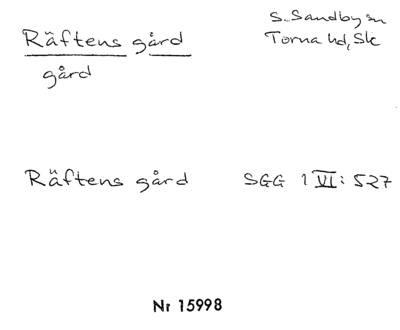 Räftens gård
S. Sandby sn
Torna hd, Sk
gård
Räftens gård SGG 1 VI: 527
Nr 15998